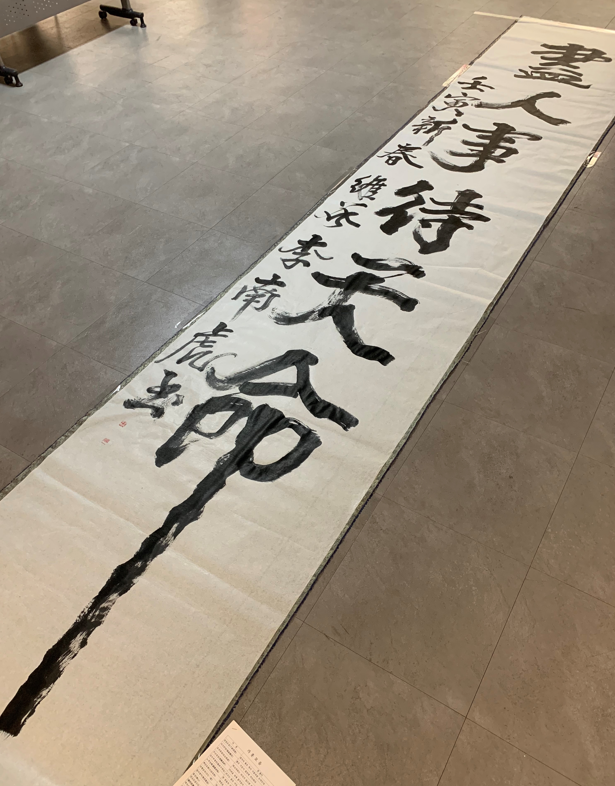 盡人事待天命
壬寅新春 維谷 李南虎书